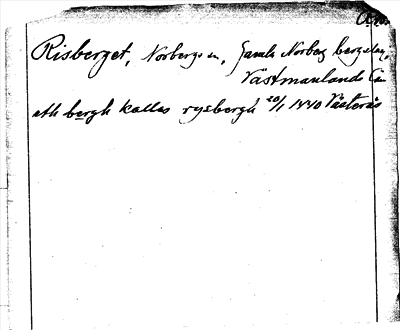 Risberget, Norbergs sn, Gamla Norberg bergslag,
Västmanlands län
eth bergh kallas rysbergh 20/1 1440 Västerås